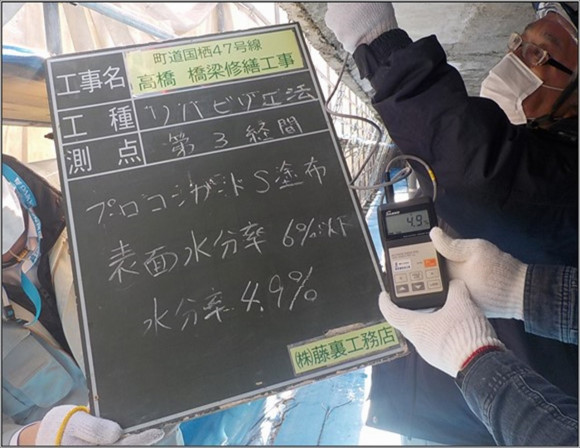 工事名
町道国栖47号線
高橋 橋梁修繕工事
工種
リハビリ工法
測点
第3径間
プロコンガードS塗布
表面水分率 6%以下
水分率 4.9%
㈱藤裏工務店
4.9%